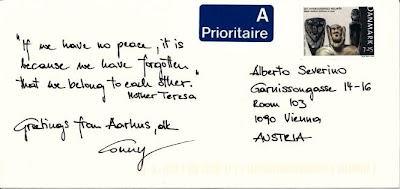 A
Prioritaire
DANMARK
"If we have no peace, it is
because we have forgotten
that we belong to each other."
Mother Teresa
Greetings from Aarhus, dk
Conny
Alberto Severino
Garnissongasse 14-16
Room 103
1090 Vienna
AUSTRIA